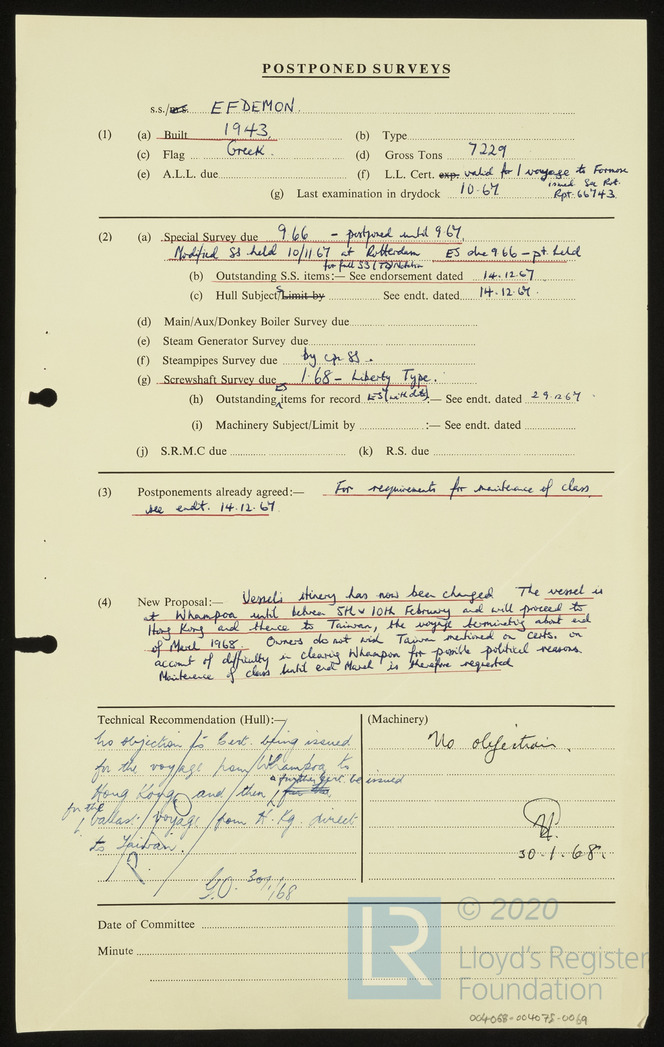 POSTPONED SURVEYS
s.s./m.s. EFDEMON.
(1) (a) Built 1943. (b) Type
(c) Flag Greek. (d) Gross Tons 7229
(e) A.L.L. due (f) L.L. Cert. exp. valid for 1 voyage to Formosa
issued See Rot.
(g) Last examination in drydock 10.67 Rpt. 66743.
(2) (a) Special Survey due 9.66 - postponed until 9.67.
Modified SS held 10/11 67 at Rotterdam ES due 9.66 - pt. held
for full SS
(b) Outstanding S.S. items:— See endorsement dated 14.12.67
(c) Hull Subject/Limit by See endt. dated 14.12.67.
(d) Main/Aux/Donkey Boiler Survey due
(e) Steam Generator Survey due
(f) Steampipes Survey due by cpn SS.
(g) Screwshaft Survey due 1.68 - Liberty Type.
ES
(h) Outstanding items for record ES :— See endt. dated 29.12.67
(i) Machinery Subject/Limit by :— See endt. dated
(j) S.R.M.C due (k) R.S. due
(3) Postponements already agreed:— For requirements for maintenance of class
see endt. 14.12.67
(4) New Proposal:— Vessel's itinery has now been changed The vessel is
at Whampoa until between 5th & 10th February and will proceed to
Hong Kong and thence to Taiwan, the voyage terminating about end
of March 1968. Owners do not wish Taiwan mentioned on certs. on
account of difficulty in clearing Whampoa for possible political reasons.
Maintenance of class until end March is therefore requested
Technical Recommendation (Hull):— (Machinery)
No objection to Cert. being issued
for the voyage from Whampoa to
a further Cert. be issued
Hong Kong, and then for the
for the
ballast voyage from H. Kg. direct
to Taiwan.
G.O. 30/1/68
No objection.
30.1.68.
Date of Committee
Minute
LR
© 2020
Lloyd's Register
Foundation
004068-004075-0069